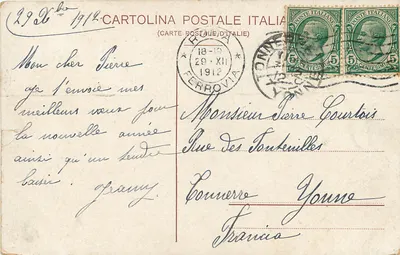 29 Xbre 1912
CARTOLINA POSTALE ITALIA
(CARTE POSTALE D'ITALIE)
18-19
29·XII
1912
FERROVIA
TONNERRE
POSTE ITALIANE
5 5
POSTE ITALIANE
5 5
Mon cher Pierre
je t'envoie mes
meilleurs vœux pour
la nouvelle année
ainsi qu'un tendre
baiser.
Monsieur Pierre Courtois
Rue des Fontenilles
Tonnerre Yonne
Francia